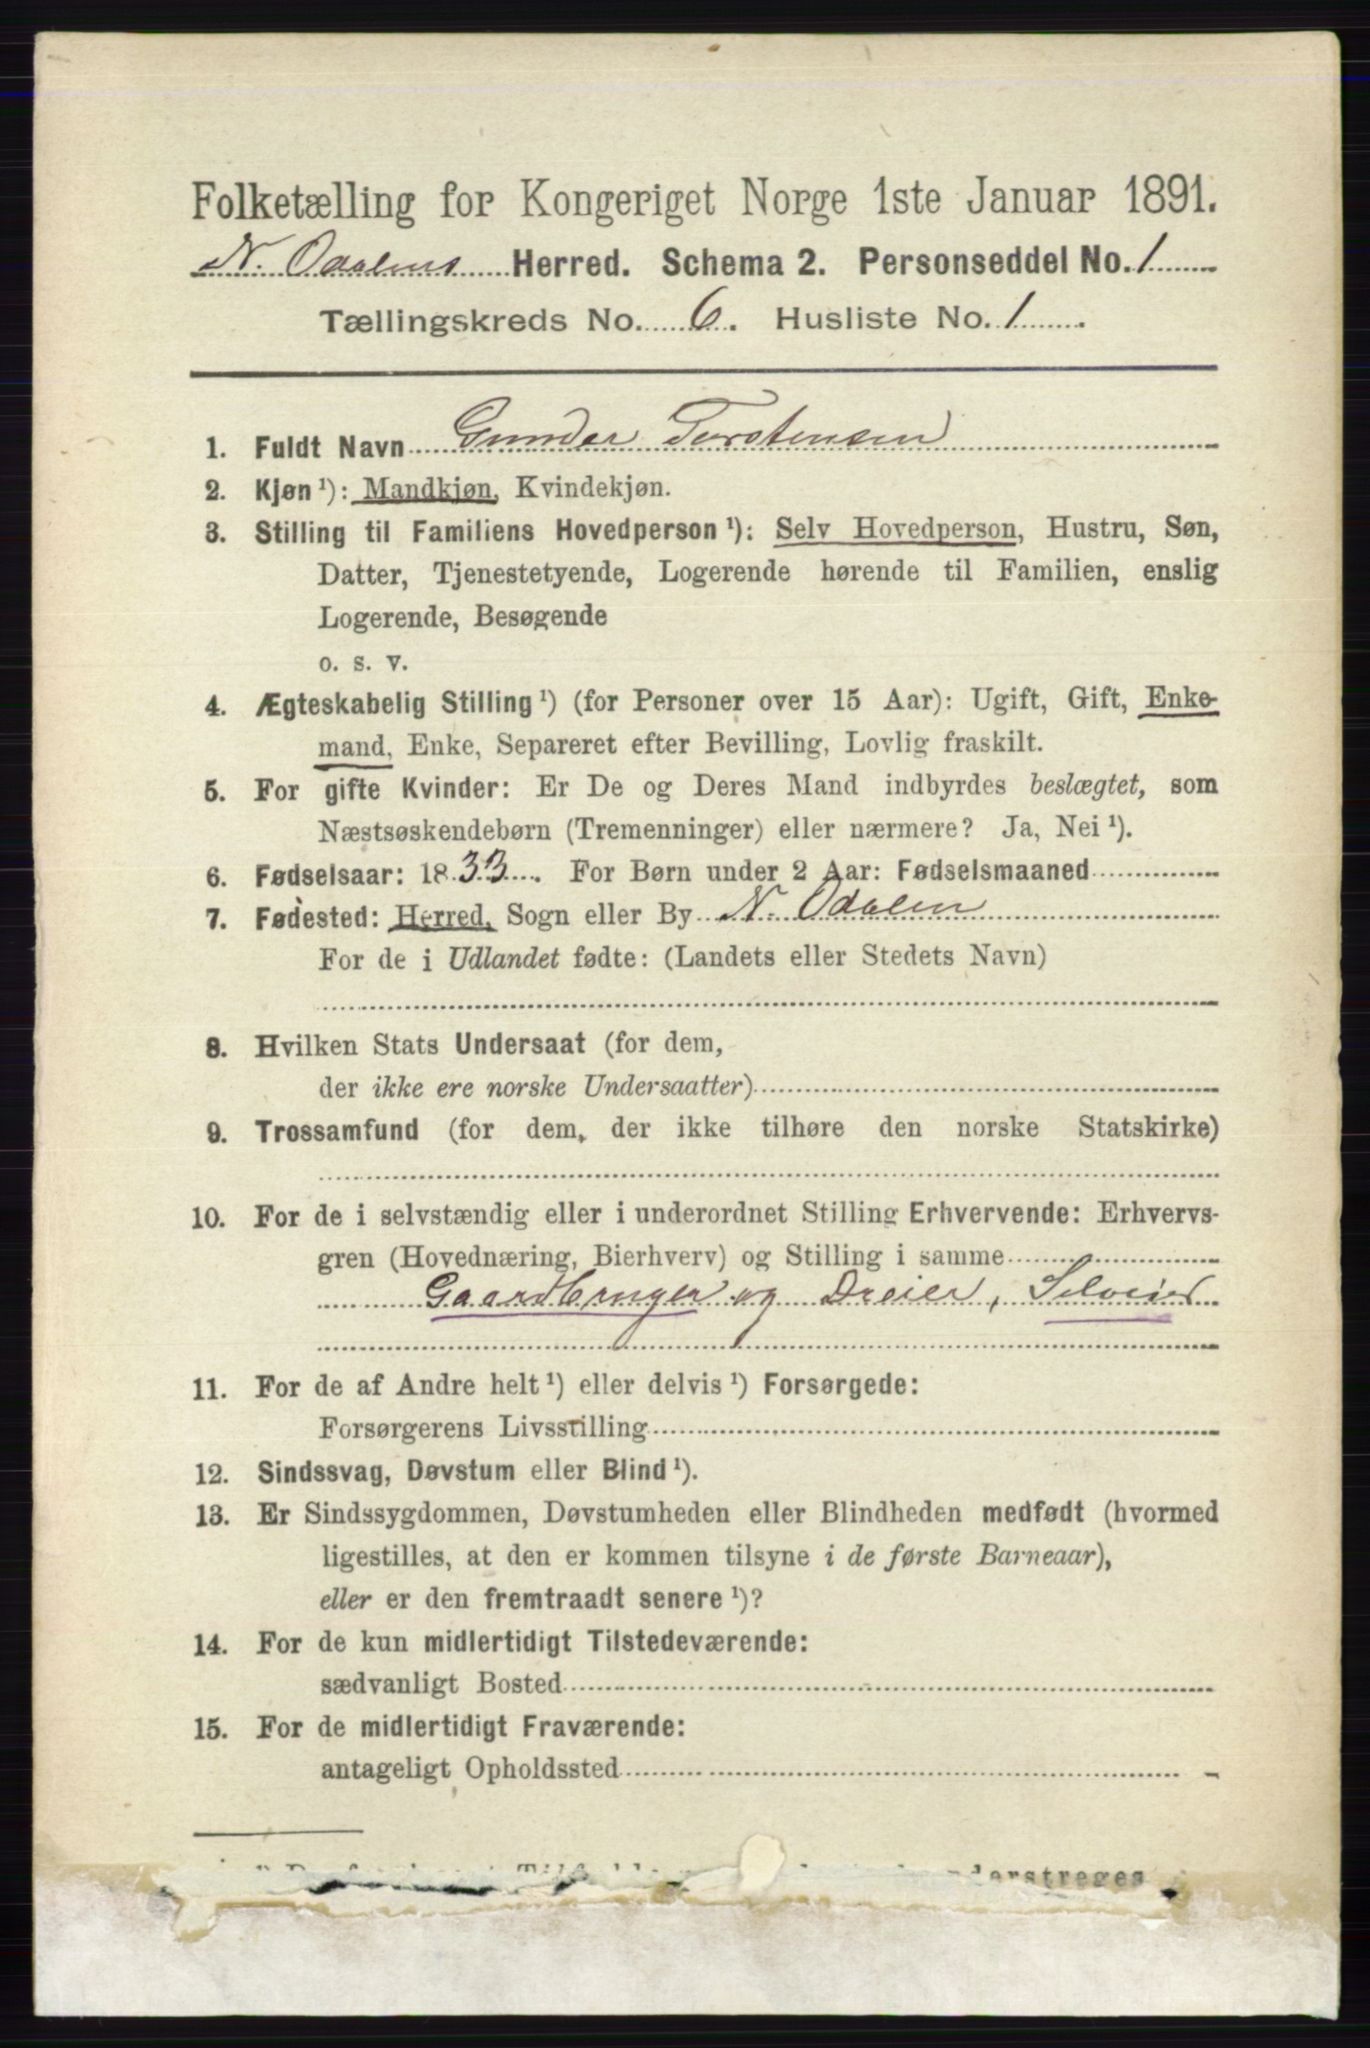 Folketælling for Kongeriget Norge 1ste Januar 1891.
N. Odalens Herred. Schema 2. Personseddel No. 1
Tællingskreds No. 6. Husliste No. 1.
1. Fuldt Navn Gunder Torstensen
2. Kjøn ¹): Mandkjøn, Kvindekjøn.
3. Stilling til Familiens Hovedperson ¹): Selv Hovedperson, Hustru, Søn,
Datter, Tjenestetyende, Logerende hørende til Familien, enslig
Logerende, Besøgende
o. s. v.
4. Ægteskabelig Stilling ¹) (for Personer over 15 Aar): Ugift, Gift, Enke-
mand, Enke, Separeret efter Bevilling, Lovlig fraskilt.
5. For gifte Kvinder: Er De og Deres Mand indbyrdes beslægtet, som
Næstsøskendebørn (Tremenninger) eller nærmere? Ja, Nei ¹).
6. Fødselsaar: 1833. For Børn under 2 Aar: Fødselsmaaned
7. Fødested: Herred, Sogn eller By N. Odalen
For de i Udlandet fødte: (Landets eller Stedets Navn)
8. Hvilken Stats Undersaat (for dem,
der ikke ere norske Undersaatter)
9. Trossamfund (for dem, der ikke tilhøre den norske Statskirke)
10. For de i selvstændig eller i underordnet Stilling Erhvervende: Erhvervs-
gren (Hovednæring, Bierhverv) og Stilling i samme
Gaardbruger og Dreier, Selveier
11. For de af Andre helt ¹) eller delvis ¹) Forsørgede:
Forsørgerens Livsstilling
12. Sindssvag, Døvstum eller Blind ¹).
13. Er Sindssygdommen, Døvstumheden eller Blindheden medfødt (hvormed
ligestilles, at den er kommen tilsyne i de første Barneaar),
eller er den fremtraadt senere ¹)?
14. For de kun midlertidigt Tilstedeværende:
sædvanligt Bosted
15. For de midlertidigt Fraværende:
antageligt Opholdssted
understreges